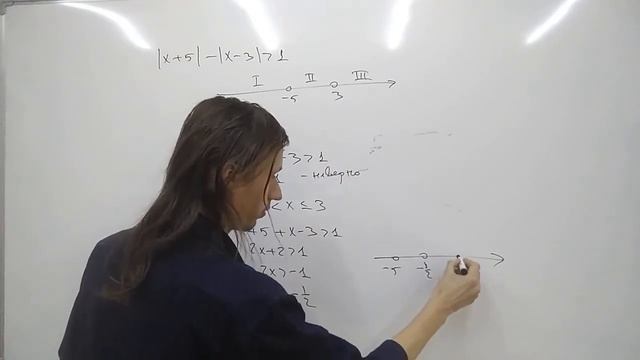 |x+5|-|x-3|>1
I II III
-5 3
-3>1
- неверно
< x ≤ 3
+5+x-3>1
2x+2>1
2x>-1
-1/2
-5 -1/2